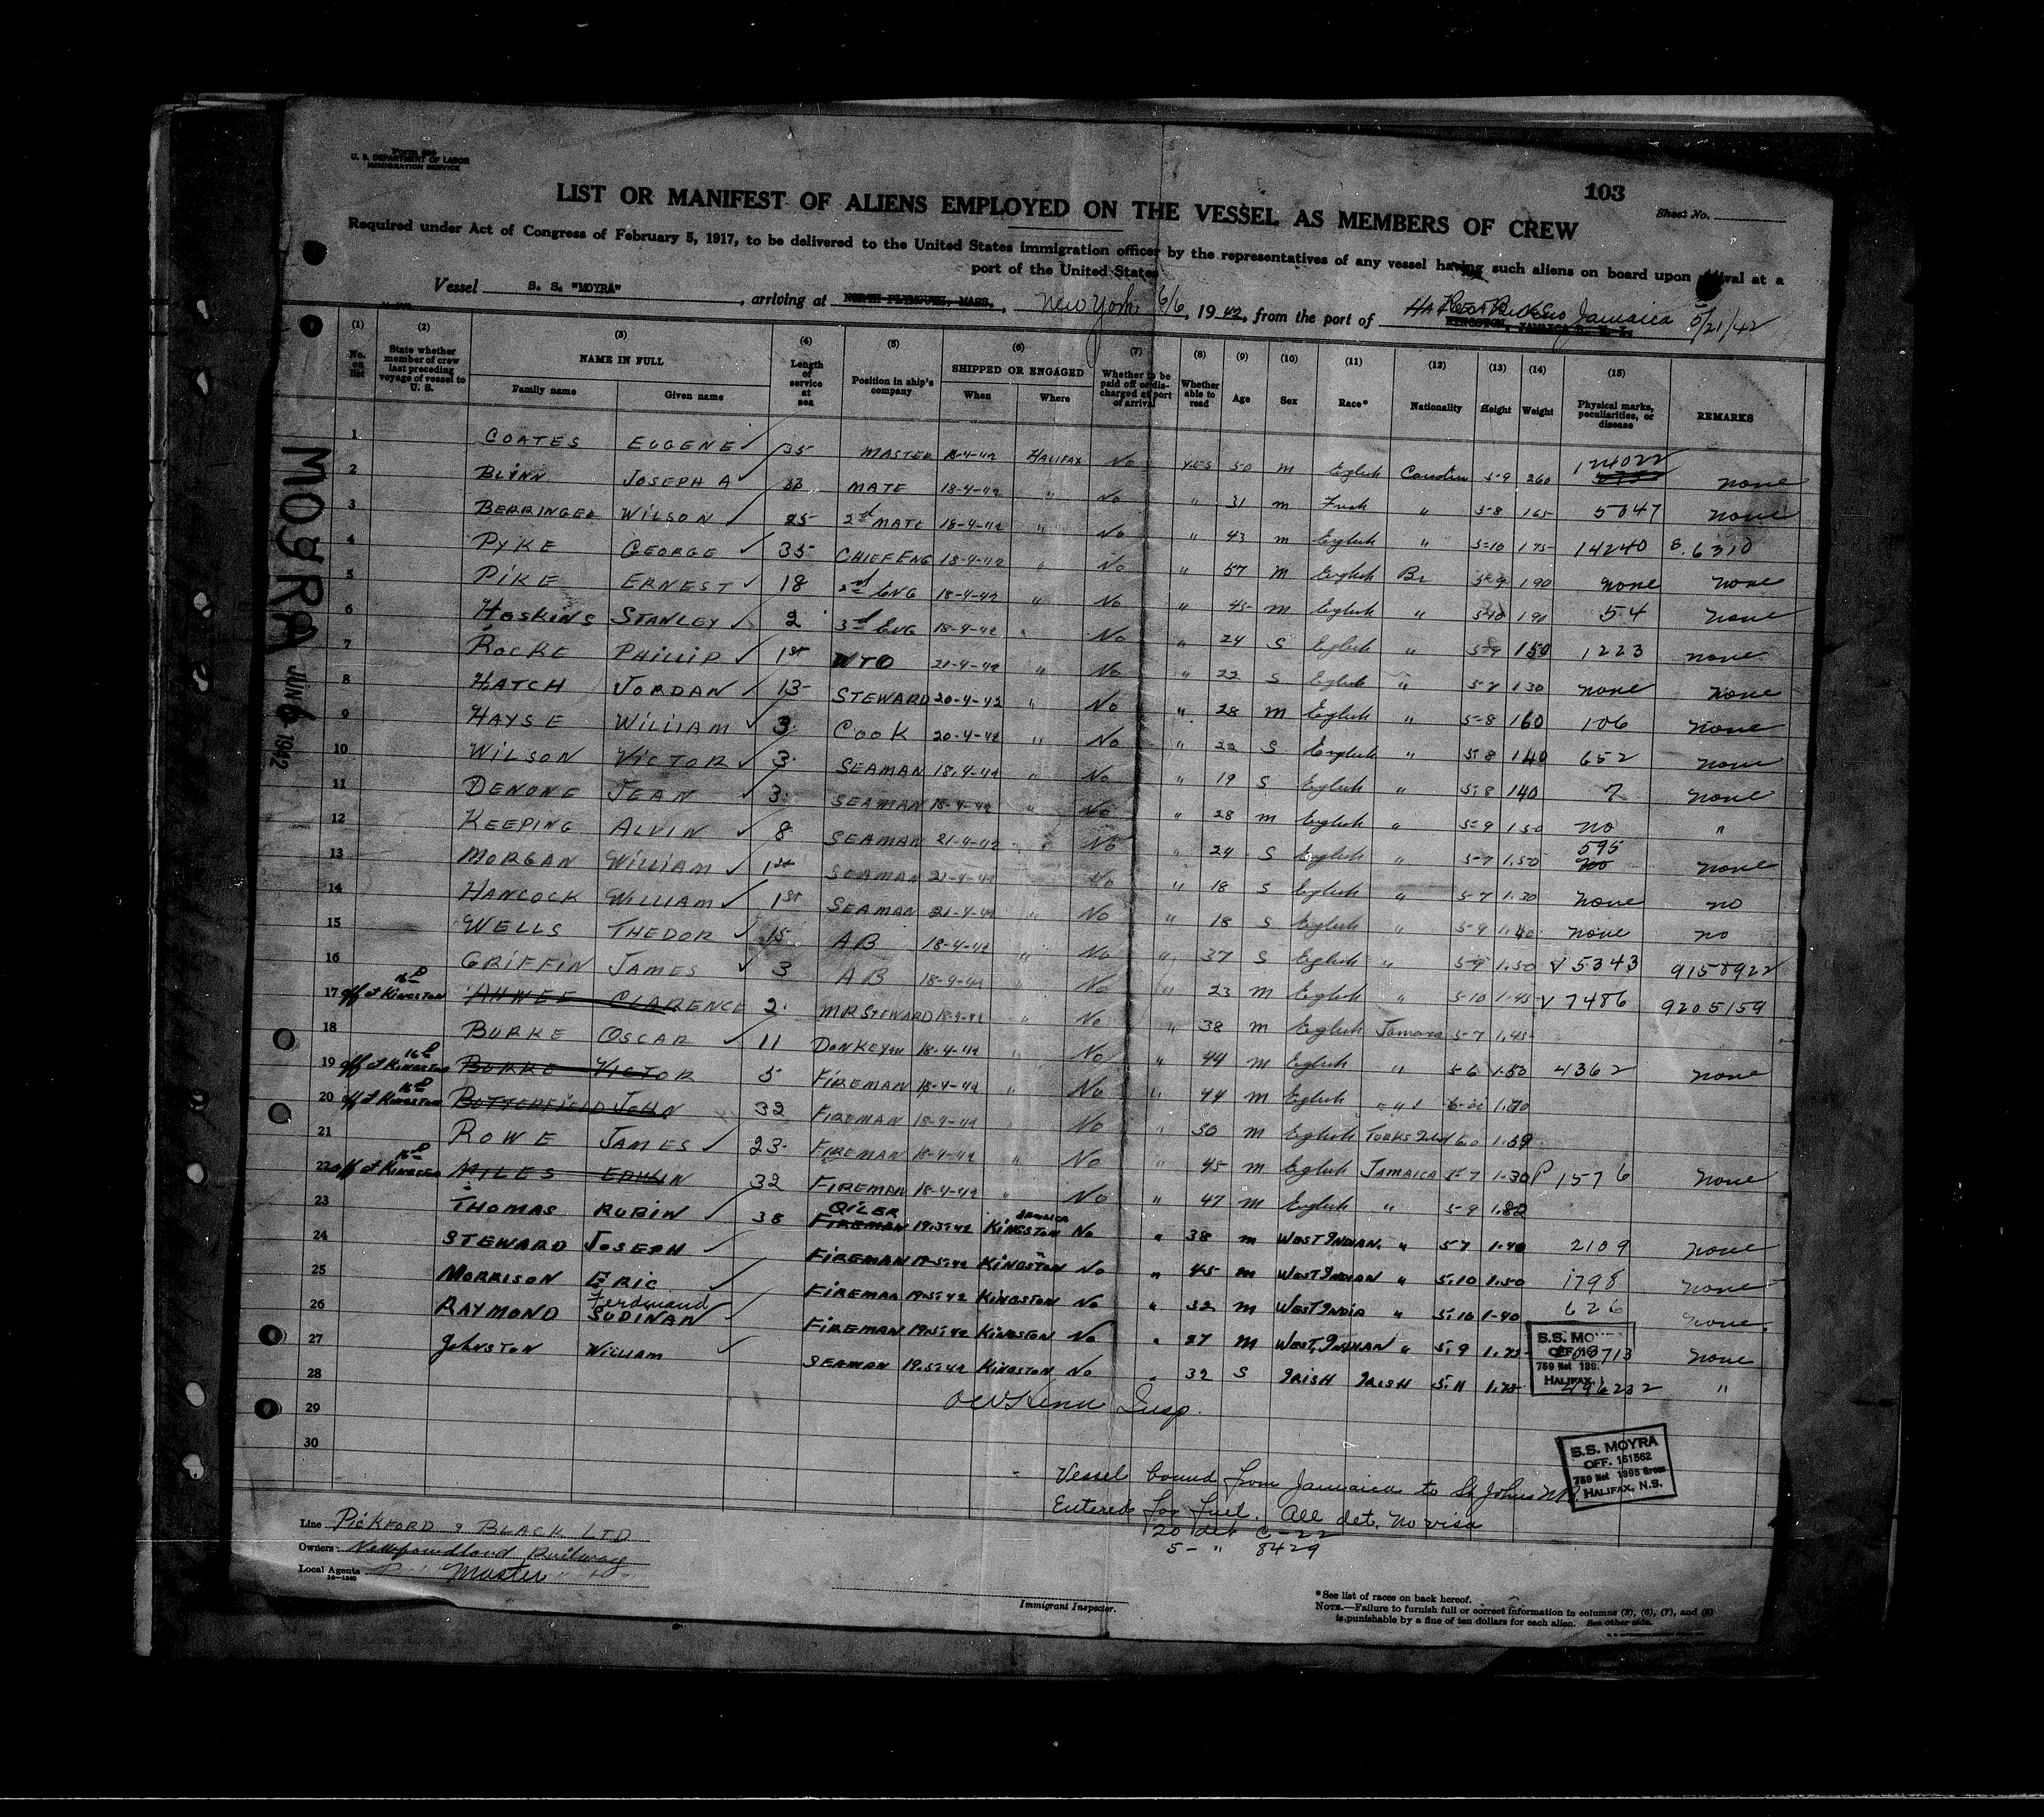 Form 680
U. S. DEPARTMENT OF LABOR
IMMIGRATION SERVICE
103
Sheet No.
LIST OR MANIFEST OF ALIENS EMPLOYED ON THE VESSEL AS MEMBERS OF CREW
Required under Act of Congress of February 5, 1917, to be delivered to the United States immigration officer by the representatives of any vessel having such aliens on board upon arrival at a
port of the United States
Vessel S. S. "MOYRA", arriving at NORTH PLYMOUTH, MASS., New York 6/6, 1942, from the port of Jamaica 5/21/42
KINGSTON, JAMAICA B. W. I.
(1) (2) (3) (4) (5) (6) (7) (8) (9) (10) (11) (12) (13) (14) (15)
No. on list State whether member of crew last preceding voyage of vessel to U. S. NAME IN FULL Length of service at sea Position in ship's company SHIPPED OR ENGAGED Whether to be paid off or discharged at port of arrival Whether able to read Age Sex Race* Nationality Height Weight Physical marks, peculiarities, or disease REMARKS
Family name Given name When Where
MOYRA JUN 6 1942
1 COATES EUGENE 35 MASTER 18-4-42 HALIFAX No YES 50 m English Canadian 5-9 260 124022 none
2 BLINN JOSEPH A 13 MATE 18-4-42 " No " 31 m " 5-8 165 5047 none
3 BERRINGER WILSON 25 2nd MATE 18-4-42 " No " 43 m English " 5-10 175 14240 B. 6310
4 PYKE GEORGE 35 CHIEF ENG 18-4-42 " No " 57 m English Br 5-9 190 none none
5 PIKE ERNEST 18 2nd ENG 18-4-42 " No " 45 m English " 5-10 190 54 none
6 HOSKINS STANLEY 2 3rd ENG 18-4-42 " No " 24 S English " 5-9 150 1223 none
7 ROCKE PHILLIP 1st WTO 21-4-42 " No " 22 S English " 5-7 130 none none
8 HATCH JORDAN 13 STEWARD 20-4-42 " No " 28 m English " 5-8 160 106 none
9 HAYSE WILLIAM 3 COOK 20-4-42 " No " 22 S English " 5-8 140 652 none
10 WILSON VICTOR 3 SEAMAN 18-4-42 " No " 19 S English " 5-8 140 7 none
11 DENONE JEAN 3 SEAMAN 18-4-42 " No " 28 m English " 5-9 150 no "
12 KEEPING ALVIN 8 SEAMAN 21-4-42 " No " 24 S English " 5-7 1.50 595 no none
13 MORGAN WILLIAM 1st SEAMAN 21-4-42 No " 18 S English " 5-7 1.30 none no
14 HANCOCK WILLIAM 1st SEAMAN 21-4-42 " No " 18 S English " 5-9 1.40 none no
15 WELLS THEDOR 15 AB 18-4-42 " No " 37 S English " 5-9 1.50 V 5343 9158922
16 GRIFFIN JAMES 3 AB 18-4-42 " No " 23 m English " 5-10 1.45 V 7486 9205159
17 off at KINGSTON AHWEE CLARENCE 2 MR STEWARD 18-4-42 " No " 38 m English Jamaica 5-7 1.45
18 BURKE OSCAR 11 DONKEYM 18-4-42 " No " 44 m English " 5-6 1.50 4362 none
19 off at KINGSTON BURKE VICTOR 5 FIREMAN 18-4-42 " No " 44 m English " 1.70
20 off at KINGSTON BUTTERFIELD JOHN 32 FIREMAN 18-4-42 " No " 50 m English TURKS Iland 6.0 1.59
21 ROWE JAMES 23 FIREMAN 18-4-42 " No " 45 m English JAMAICA 5-7 1.30 P 1576 none
22 off at KINGSTON MILES EDWIN 32 FIREMAN 18-4-42 " No " 47 m English " 5-9 1.82
23 THOMAS RUBIN 38 OILER FIREMAN 19.5.42 KINGSTON JAMAICA No " 38 m WEST INDIAN " 5.7 1.40 2109 none
24 STEWARD JOSEPH FIREMAN 19.5.42 KINGSTON No " 45 m WEST INDIAN " 5.10 1.50 1798 none
25 MORRISON ERIC FIREMAN 19.5.42 KINGSTON No " 32 m WEST INDIA " 5.10 1.40 626 none
26 RAYMOND Ferdinand SUDINAN FIREMAN 19.5.42 KINGSTON No " 27 m WEST INDIAN " 5.9 1.75 none
27 JOHNSTON WILLIAM SEAMAN 19.5.42 KINGSTON No " 32 S IRISH IRISH 5.11 1.75 496232 "
28
29
30
Insp.
S.S. MOYRA
OFF. 161562
759 Net 1395 Gross
HALIFAX, N.S.
Vessel bound from Jamaica to St Johns NF
Entered for fuel. All det. no visa
20 det C-22
5 - " 8429
Line PICKFORD & BLACK LTD
Owners Newfoundland Railway
Local Agents Master
Immigrant Inspector.
*See list of races on back hereof.
NOTE.—Failure to furnish full or correct information in columns (3), (6), (7), and (8)
is punishable by a fine of ten dollars for each alien. See other side.